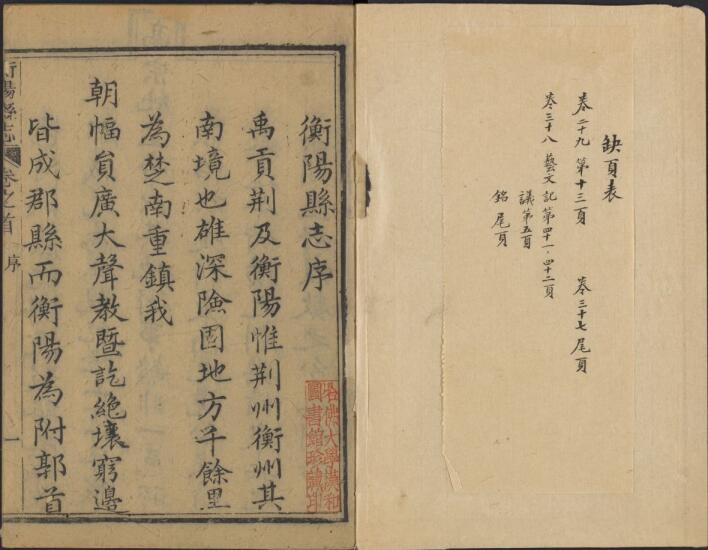 缺頁表
卷二十九 第十三頁 卷三十七 尾頁
卷三十八 藝文 記第四十一、四十二頁
議第五頁
銘 尾頁
衡陽縣志序
禹貢荆及衡陽惟荆州衡州其
南境也雄深險固地方千餘里
為楚南重鎮我
朝幅員廣大聲教曁訖絶壤窮邊
皆成郡縣而衡陽為附郭首
衡陽縣志 卷之首 序 一
哈佛大學漢和
圖書館珍藏印